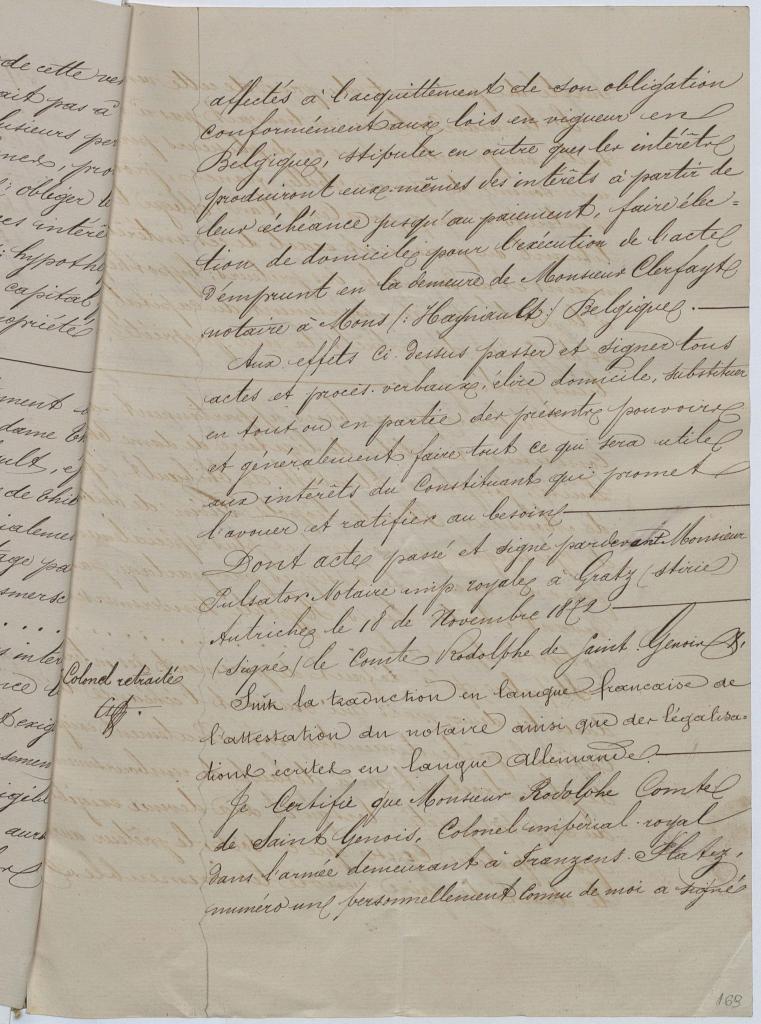 de cette ver
ait pas à
lusieurs per
obliger
intérê
hypoth
capital
opriété
ment
dame
ault, e
de
ialemen
age pa
smersc
. . . .
inter
exig
semen
igibl
affectés à l'acquittement de son obligation
conformément aux lois en vigueur en
Belgique, stipuler en outre que les intérêts
produiront eux-mêmes des intérêts à partir de
leur échéance jusqu'au paiement, faire élec=
tion de domicile pour l'exécution de l'acte
d'emprunt en la demeure de Monsieur Clerfayt
notaire à Mons (: Haynault :) Belgique.
Aux effets ci-dessus passer et signer tous
actes et procès-verbaux, élire domicile, substituer
en tout ou en partie des présents pouvoirs
et généralement faire tout ce qui sera utile
aux intérêts du Constituant qui promet
l'avouer et ratifier au besoin
Dont acte passé et signé pardevant Monsieur
Pulsator Notaire imp. royale à Gratz (Stirie)
Autriche le 18 de Novembre 1872
(Signé) le Comte Rodolphe de Saint Genois
Colonel retraité
Suit la traduction en langue française de
l'attestation du notaire ainsi que des légalisa=
tions écrites en langue allemande.
Je Certifie que Monsieur Rodolphe Comte
de Saint Genois, Colonel impérial-royal
dans l'armée demeurant à Franzens-Platz,
numéro un personnellement connu de moi a signé
169